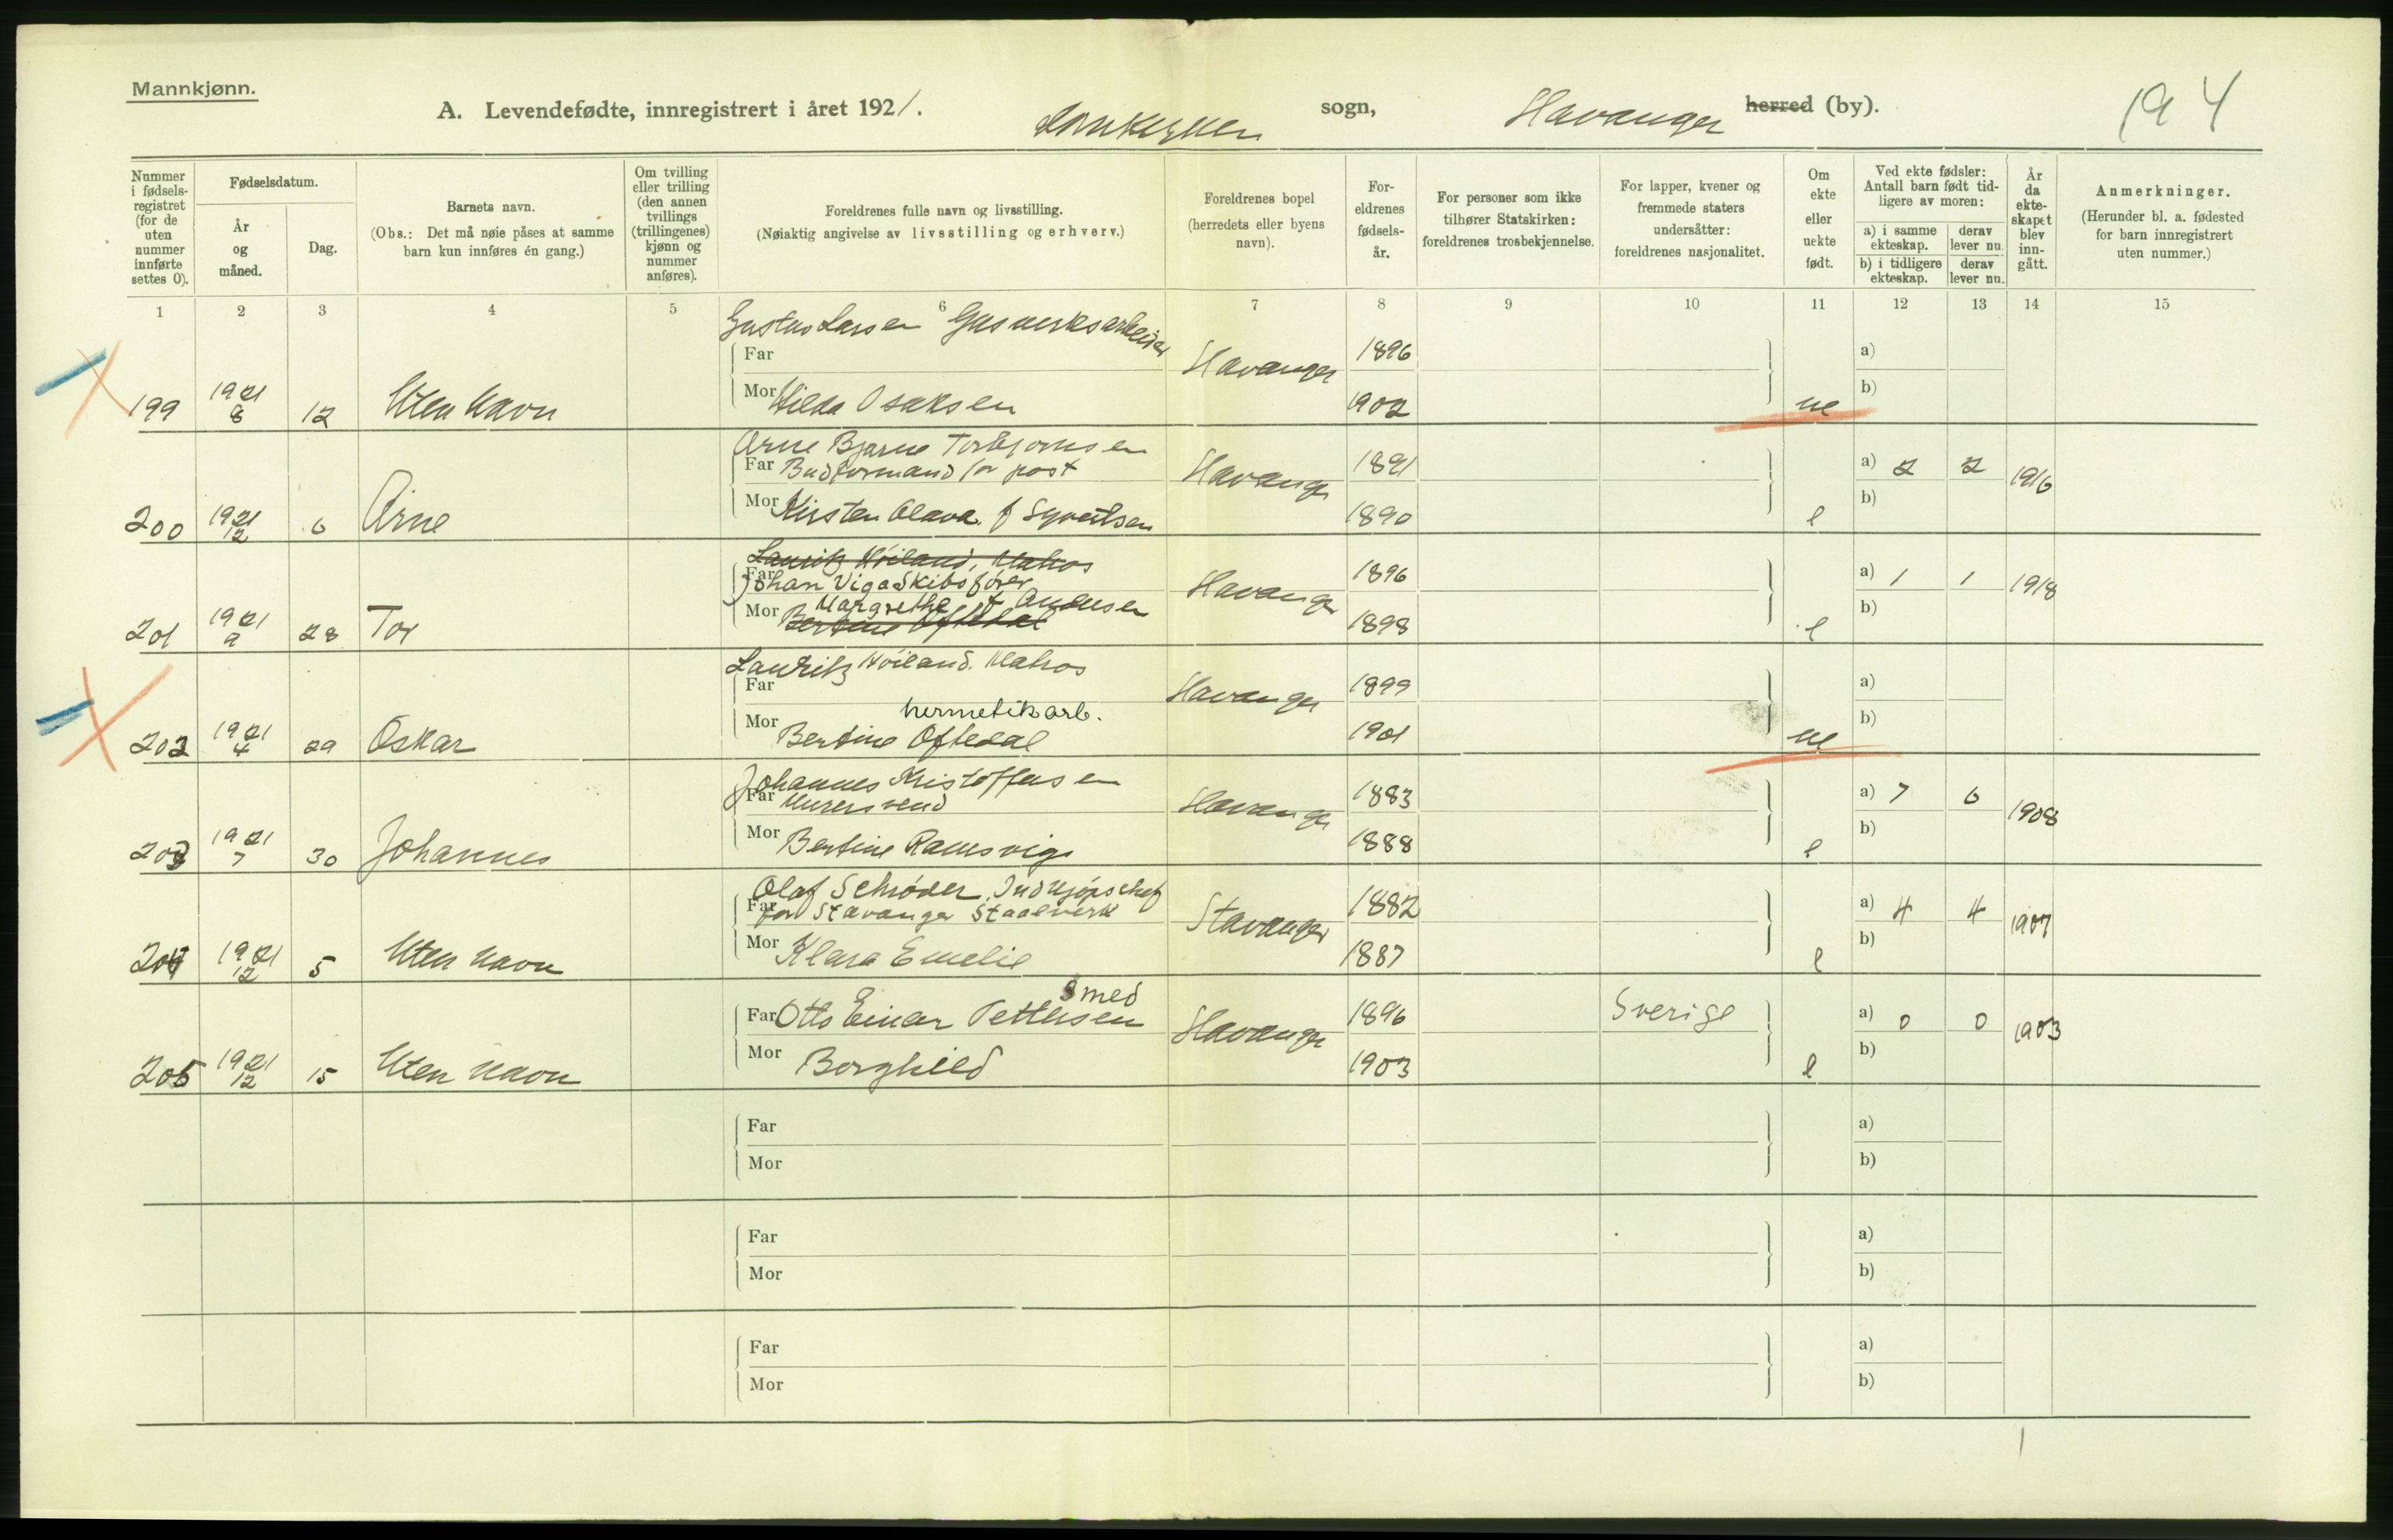 Mannkjønn.
A. Levendefødte, innregistrert i året 1921. Domkirken sogn, Stavanger herred (by). 194
Nummer i fødselsregistret (for de uten nummer innførte settes 0).
Fødselsdatum.
År og måned.
Dag.
Barnets navn.
(Obs.: Det må nøie påses at samme barn kun innføres én gang.)
Om tvilling eller trilling (den annen tvillings (trillingenes) kjønn og nummer anføres).
Foreldrenes fulle navn og livsstilling.
(Nøiaktig angivelse av livsstilling og erhverv.)
Foreldrenes bopel (herredets eller byens navn).
Foreldrenes fødselsår.
For personer som ikke tilhører Statskirken: foreldrenes trosbekjennelse.
For lapper, kvener og fremmede staters undersåtter: foreldrenes nasjonalitet.
Om ekte eller uekte født.
Ved ekte fødsler: Antall barn født tidligere av moren:
a) i samme ekteskap. derav lever nu.
b) i tidligere ekteskap. derav lever nu.
År da ekteskapet blev inngått.
Anmerkninger.
(Herunder bl. a. fødested for barn innregistrert uten nummer.)
1 2 3 4 5 6 7 8 9 10 11 12 13 14 15
Gustav Larsen Gasverksarbeider
199 1921 8 12 Uten Navn Far Stavanger 1896 a)
Mor Hilda Isaksen 1902 ue b)
Arne Bjarne Torbjørnsen
200 1921 12 6 Arne Far Budformand for post Stavanger 1891 a) 2 2 1916
Mor Kirsten Olava f Syvertsen 1890 e b)
Lauritz Høiland, Matros
201 1921 9 28 Tor Far Johan Viga Skibsfører Stavanger 1896 a) 1 1 1918
Mor Margrethe f Andersen 1898 e b)
Bertine Oftedal
Lauritz Høiland. Matros
202 1921 4 29 Oskar Far Stavanger 1899 a)
hermetikarb.
Mor Bertine Oftedal 1901 ue b)
Johannes Kristoffersen
203 1921 7 30 Johannes Far Murersvend Stavanger 1883 a) 7 6 1908
Mor Bertine Ramsvig 1888 e b)
Olaf Schrøder, Indkjøpschef
204 1921 12 5 Uten Navn Far for Stavanger Staalverk Stavanger 1882 a) 4 4 1907
Mor Klara Emelie 1887 e b)
Smed
205 1921 12 15 Uten Navn Far Otto Einar Pettersen Stavanger 1896 Sverige a) 0 0
Mor Borghild 1903 e b)
Far a)
Mor b)
Far a)
Mor b)
Far a)
Mor b)